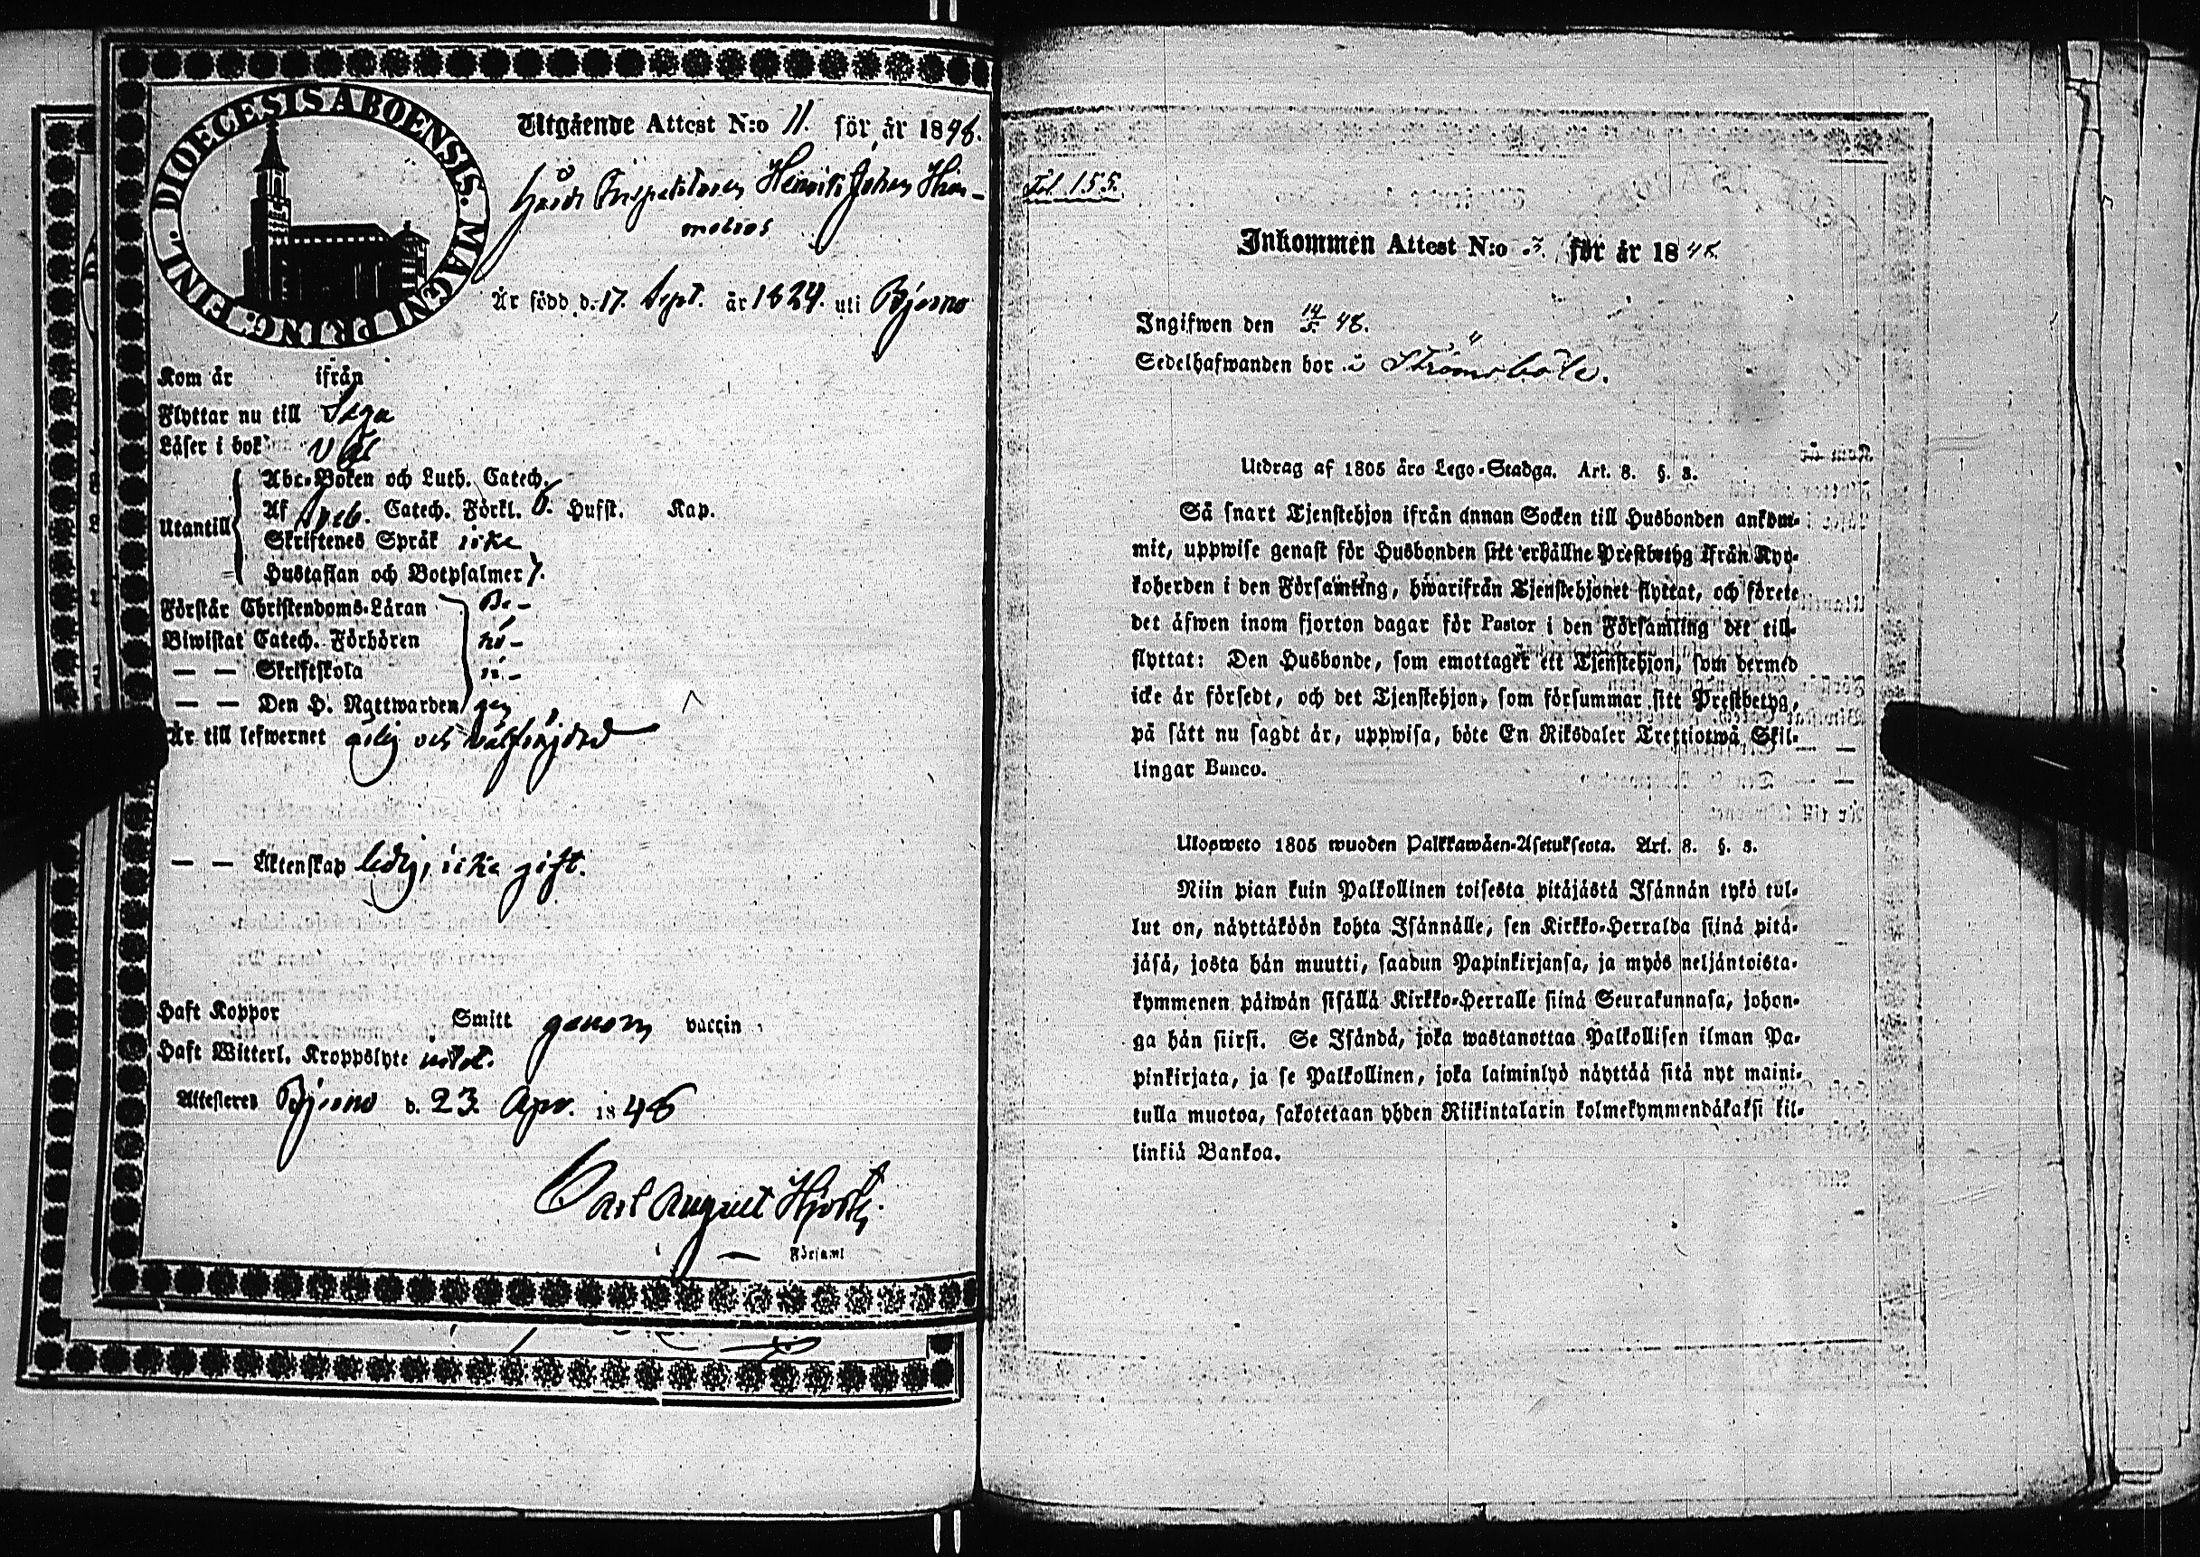 DIOECESIS ABOENSIS. MAGNI PRINC. FINL.
Utgående Attest N:o 11. för år 1848.
Gårds Inspektoren Henrik Johan Him-
melroos
År född d. 17. Sept. år 1824. uti Bjerno
Kom år ifrån
Flyttar nu till
Läser i bok väl
Utantill
Abc-Boken och Luth. Catech.
Af Catech. Förkl. Hufst. Kap.
Skriftenes Språk icke
Hustaflan och Botpsalmer 7.
Förstår Christendoms-Läran Be-
Biwistat Catech. Förhören hö-
— — Skriftskola ri-
— — Den H. Nattwarden gen
Är till lefwernet och wälfrejdad
— — Äktenskap ledig, icke gift.
Haft Koppor Smitt genom vaccin
Haft Witterl. Kroppslyte
Attesteras Bjerno d. 23. Apr. 1848
Carl August
Församl
Fol. 155.
Inkommen Attest N:o 3. för år 1848.
Ingifwen den 14/5. 48.
Sedelhafwanden bor i Strömsböle.
Utdrag af 1805 års Lego-Stadga. Art. 8. §. 3.
Så snart Tjenstehjon ifrån annan Socken till Husbonden ankom-
mit, uppwise genast för Husbonden sitt erhållne Prestbetyg ifrån Kyr-
koherden i den Församling, hwarifrån Tjenstehjonet flyttat, och förete
det äfwen inom fjorton dagar för Pastor i den Församling det till-
flyttat: Den Husbonde, som emottager ett Tjenstehjon, som dermed
icke är försedt, och det Tjenstehjon, som försummar sitt Prestbetyg,
på sätt nu sagdt är, uppwisa, böte En Riksdaler Trettiotwå Skil-
lingar Banco.
Ulosweto 1805 wuoden Palkkawäen-Asetuksesta. Art. 8. §. 3.
Niin pian kuin Palkollinen toisesta pitäjästä Isännän tykö tul-
lut on, näyttäköön kohta Isännälle, sen Kirkko-Herralda siinä pitä-
jäsä, josta hän muutti, saadun Papinkirjansa, ja myös neljäntoista-
kymmenen päiwän sisällä Kirkko-Herralle siinä Seurakunnasa, johon-
ga hän siirsi. Se Isändä, joka wastanottaa Palkollisen ilman Pa-
pinkirjata, ja se Palkollinen, joka laiminlyö näyttää sitä nyt maini-
tulla muotoa, sakotetaan yhden Riikintalarin kolmekymmendäkaksi kil-
linkiä Bankoa.